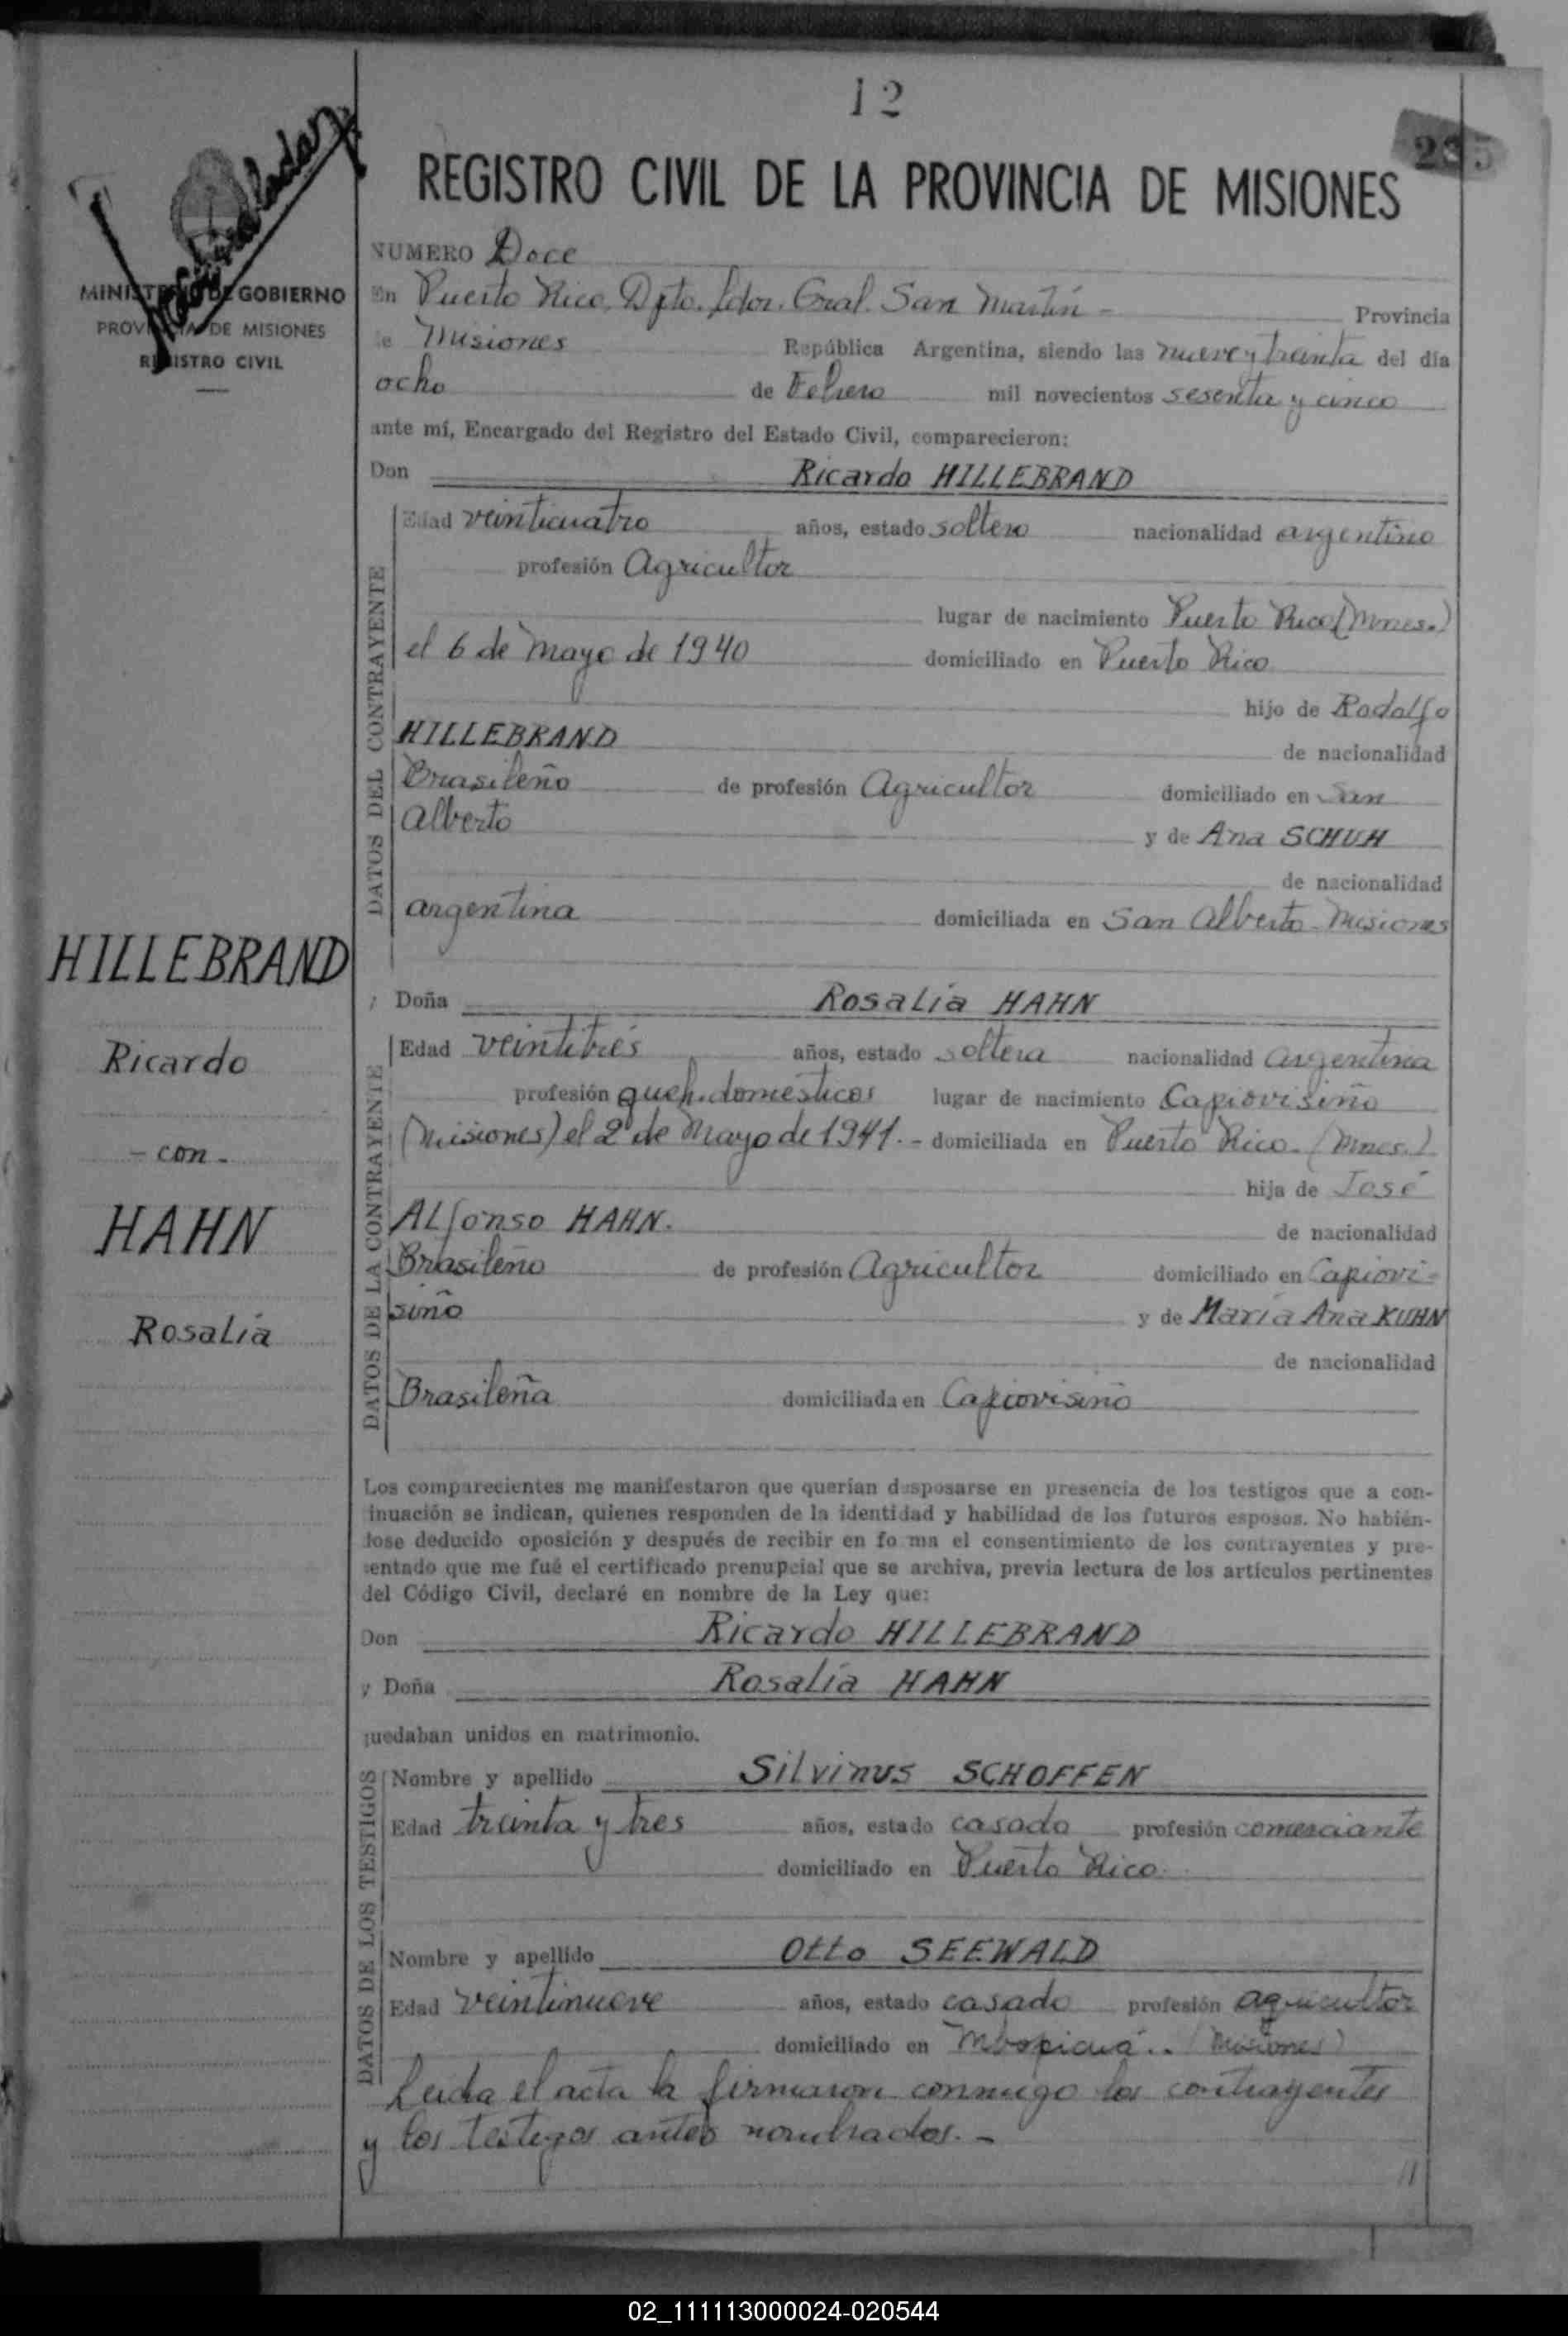 12
235
REGISTRO CIVIL DE LA PROVINCIA DE MISIONES
MINISTERIO DE GOBIERNO
PROVINCIA DE MISIONES
REGISTRO CIVIL
HILLEBRAND
Ricardo
- con -
HAHN
Rosalía
NUMERO Doce
En Puerto Rico, Dpto. Ldor. Gral. San Martín - Provincia
de Misiones República Argentina, siendo las nueve y treinta del día
ocho de Febrero mil novecientos sesenta y cinco
ante mí, Encargado del Registro del Estado Civil, comparecieron:
Don Ricardo HILLEBRAND
DATOS DEL CONTRAYENTE
Edad veinticuatro años, estado soltero nacionalidad argentino
profesión Agricultor
lugar de nacimiento Puerto Rico (Mnes.)
el 6 de Mayo de 1940 domiciliado en Puerto Rico
hijo de Rodolfo
HILLEBRAND de nacionalidad
Brasileño de profesión Agricultor domiciliado en San
Alberto y de Ana SCHUH
de nacionalidad
argentina domiciliada en San Alberto - Misiones
y Doña Rosalía HAHN
DATOS DE LA CONTRAYENTE
Edad veintitrés años, estado soltera nacionalidad argentina
profesión queh. domésticos lugar de nacimiento Capiovisiño
(Misiones) el 2 de Mayo de 1941. - domiciliada en Puerto Rico. (Mnes.)
hija de José
Alfonso HAHN. de nacionalidad
Brasileño de profesión Agricultor domiciliado en Capiovi-
siño y de María Ana KUHN
de nacionalidad
Brasileña domiciliada en Capiovisiño
Los comparecientes me manifestaron que querían desposarse en presencia de los testigos que a con-
tinuación se indican, quienes responden de la identidad y habilidad de los futuros esposos. No habién-
dose deducido oposición y después de recibir en forma el consentimiento de los contrayentes y pre-
sentado que me fué el certificado prenupcial que se archiva, previa lectura de los artículos pertinentes
del Código Civil, declaré en nombre de la Ley que:
Don Ricardo HILLEBRAND
y Doña Rosalía HAHN
quedaban unidos en matrimonio.
DATOS DE LOS TESTIGOS
Nombre y apellido Silvinus SCHOFFEN
Edad treinta y tres años, estado casado profesión comerciante
domiciliado en Puerto Rico.
Nombre y apellido Otto SEEWALD
Edad veintinueve años, estado casado profesión agricultor
domiciliado en Mbopicuá.. (Misiones)
Leída el acta la firmaron conmigo los contrayentes
y los testigos antes nombrados. -
//
02_111113000024-020544